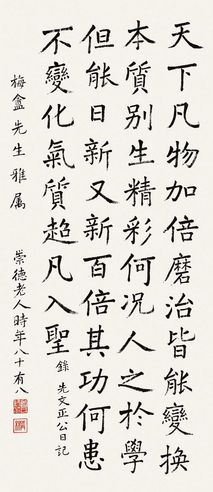 天下凡物加倍磨治皆能變換
本質别生精彩何況人之於學
但能日新又新百倍其功何患
不變化氣質超凡入聖 錄 先文正公日記
梅盦先生雅属 崇德老人時年八十有八